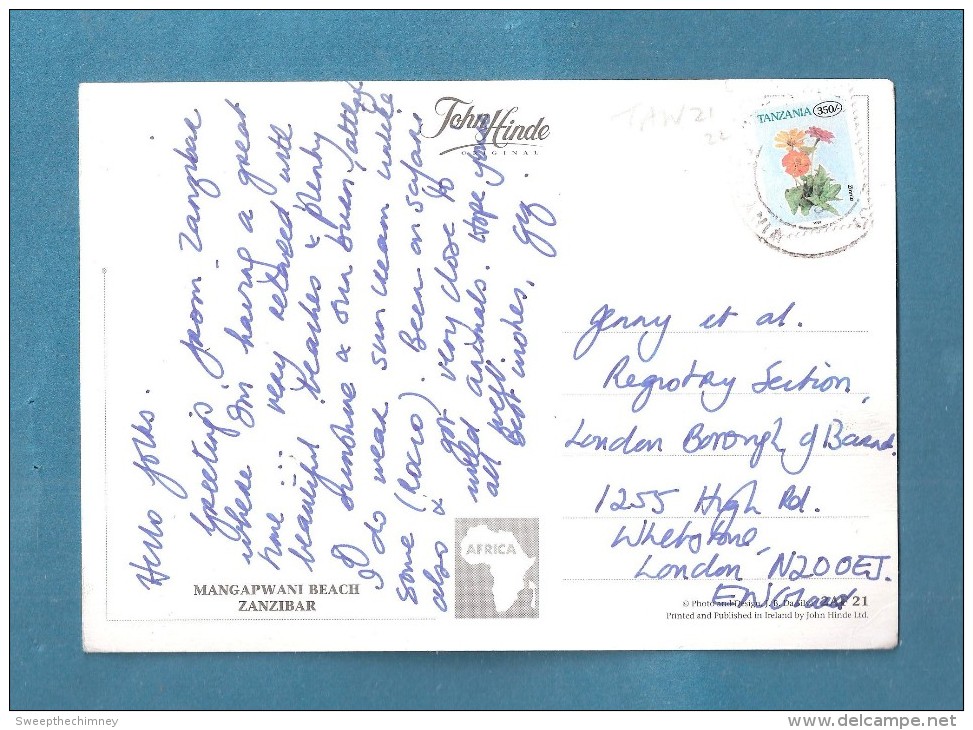 Hello folks.
Greetings from Zanzibar
where I'm having a great
time ... very relaxed with
beautiful beaches & plenty
of sunshine & sun burn, latter
I do wear sun cream unlike
some (Roco). Been on safari
also & got very close to
wild animals. Hope you
all well.
Best wishes,
John Hinde
ORIGINAL
TAW 21
22
TANZANIA 350/-
Zinnia
Jenny et al.
Registry Section,
London Borough of Barnet.
1255 High Rd.
Whetstone,
London N20 0EJ.
ENGLAND
AFRICA
MANGAPWANI BEACH
ZANZIBAR
© Photo and Design, J. B. Da
ZAP 21
Printed and Published in Ireland by John Hinde Ltd.
Sweepthechimney
delcampe.net